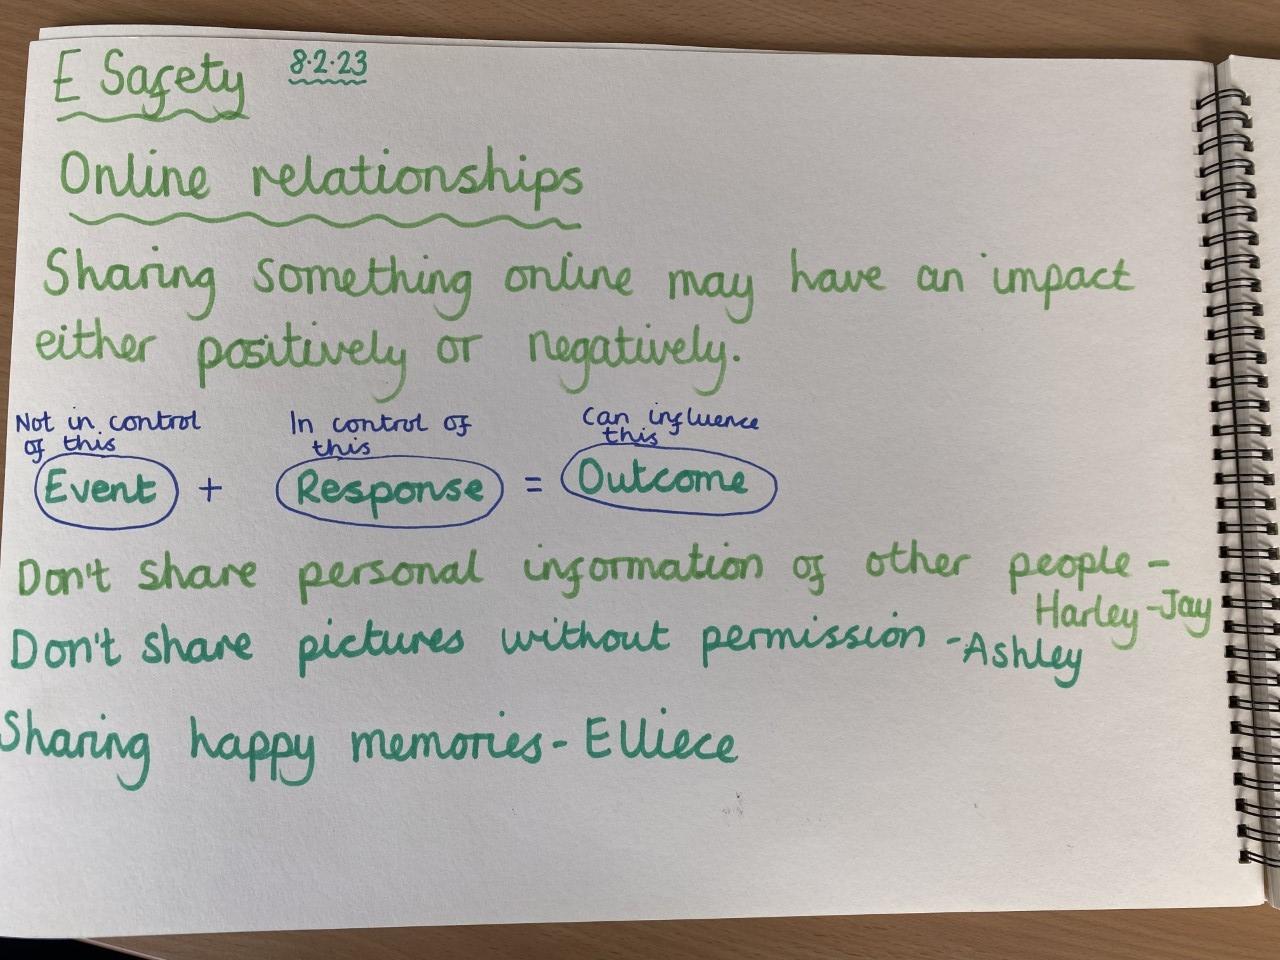 E Safety 8.2.23
Online relationships
Sharing something online may have an impact
either positively or negatively.
Not in control of this In control of this Can influence this
Event + Response = Outcome
Don't share personal information of other people -
Harley-Jay
Don't share pictures without permission - Ashley
Sharing happy memories - Elliece